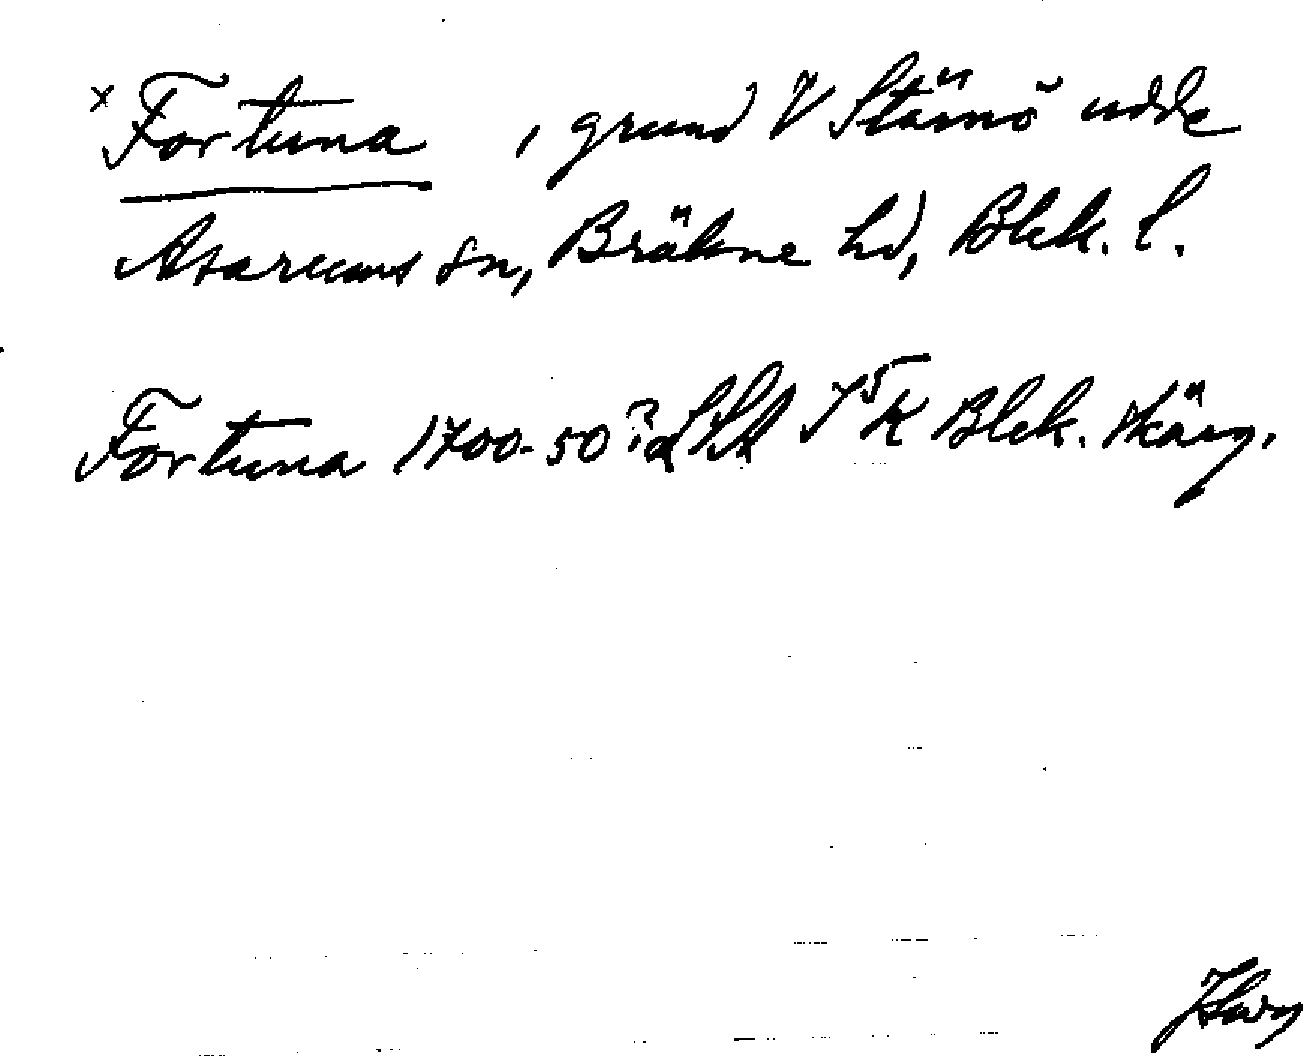 x Fortuna , grund V Stärnö udde
Asarums sn, Bräkne hd, Blek. l.
Fortuna 1700-50 ? K Blek. skärg.